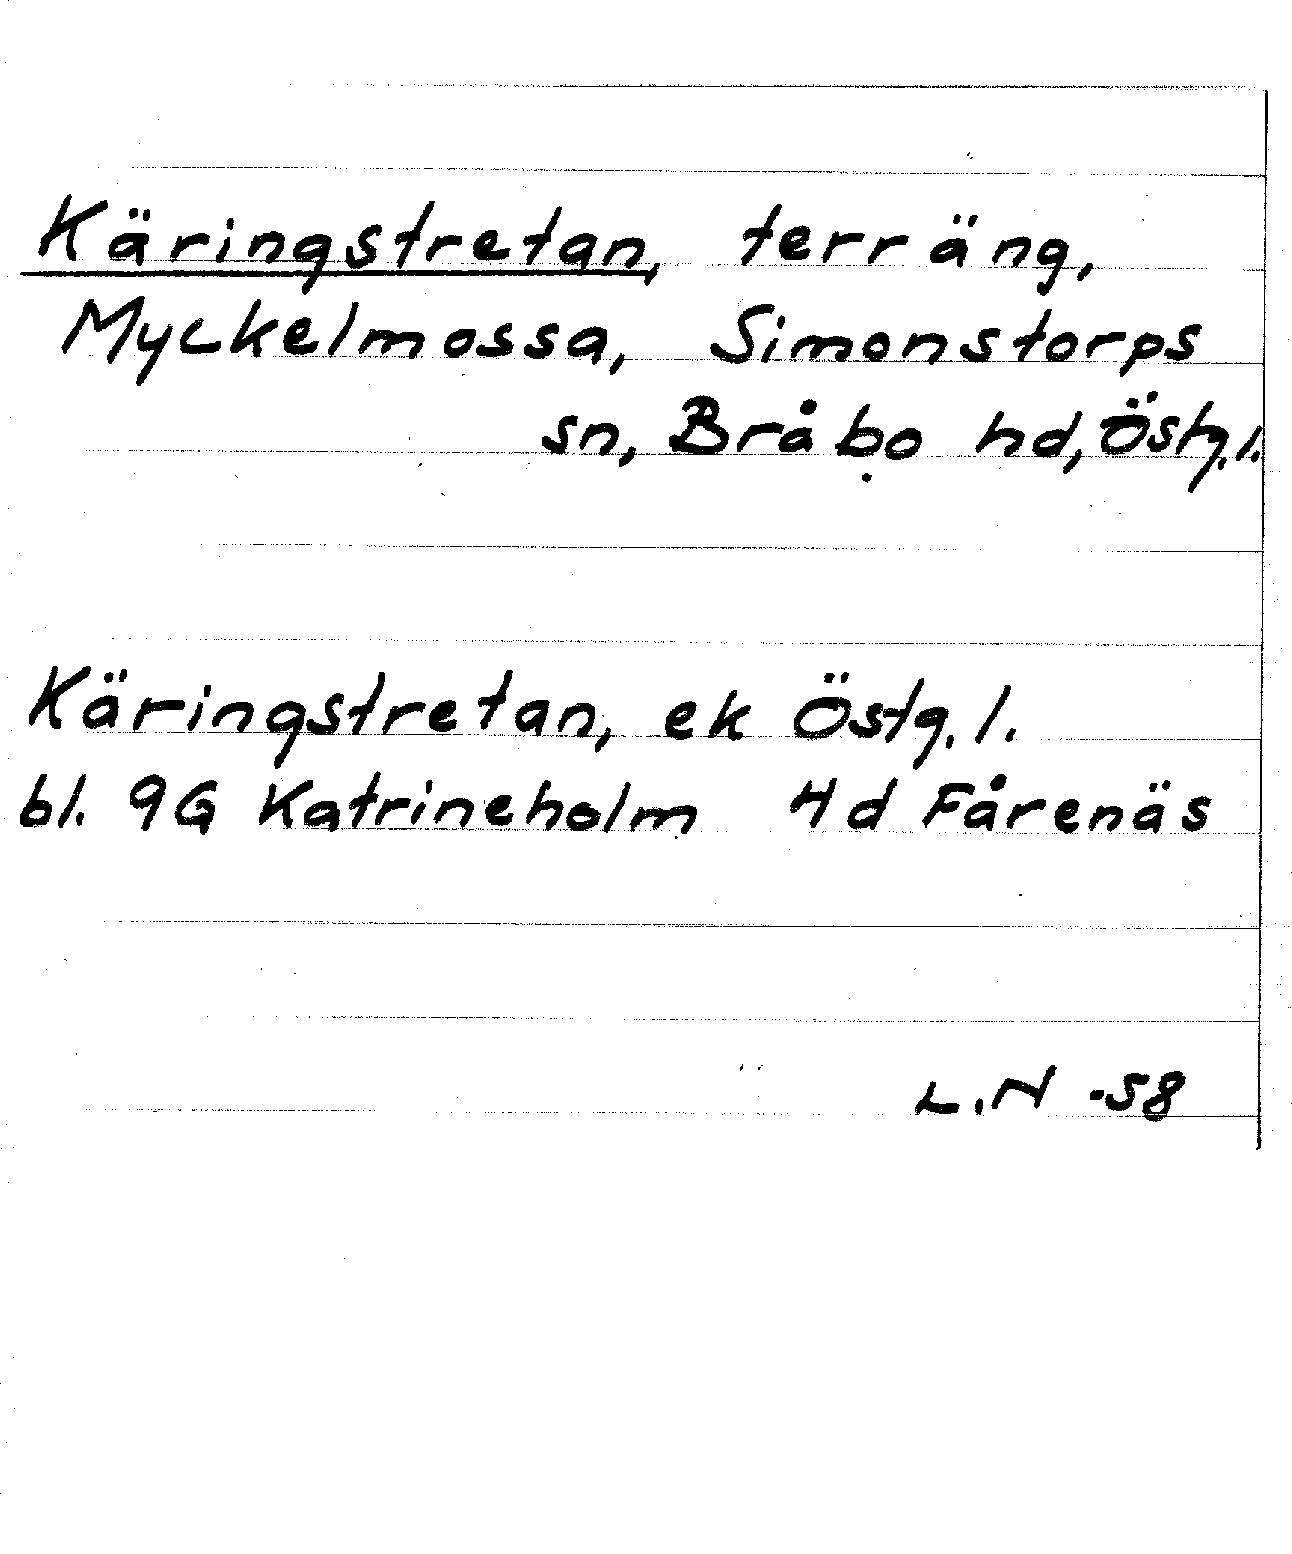 Käringstretan, terräng,
Myckelmossa, Simonstorps
sn, Bråbo hd, Östg.l.
Käringstretan, ek Östg.l.
bl. 9G Katrineholm 4d Fårenäs
L.N -58